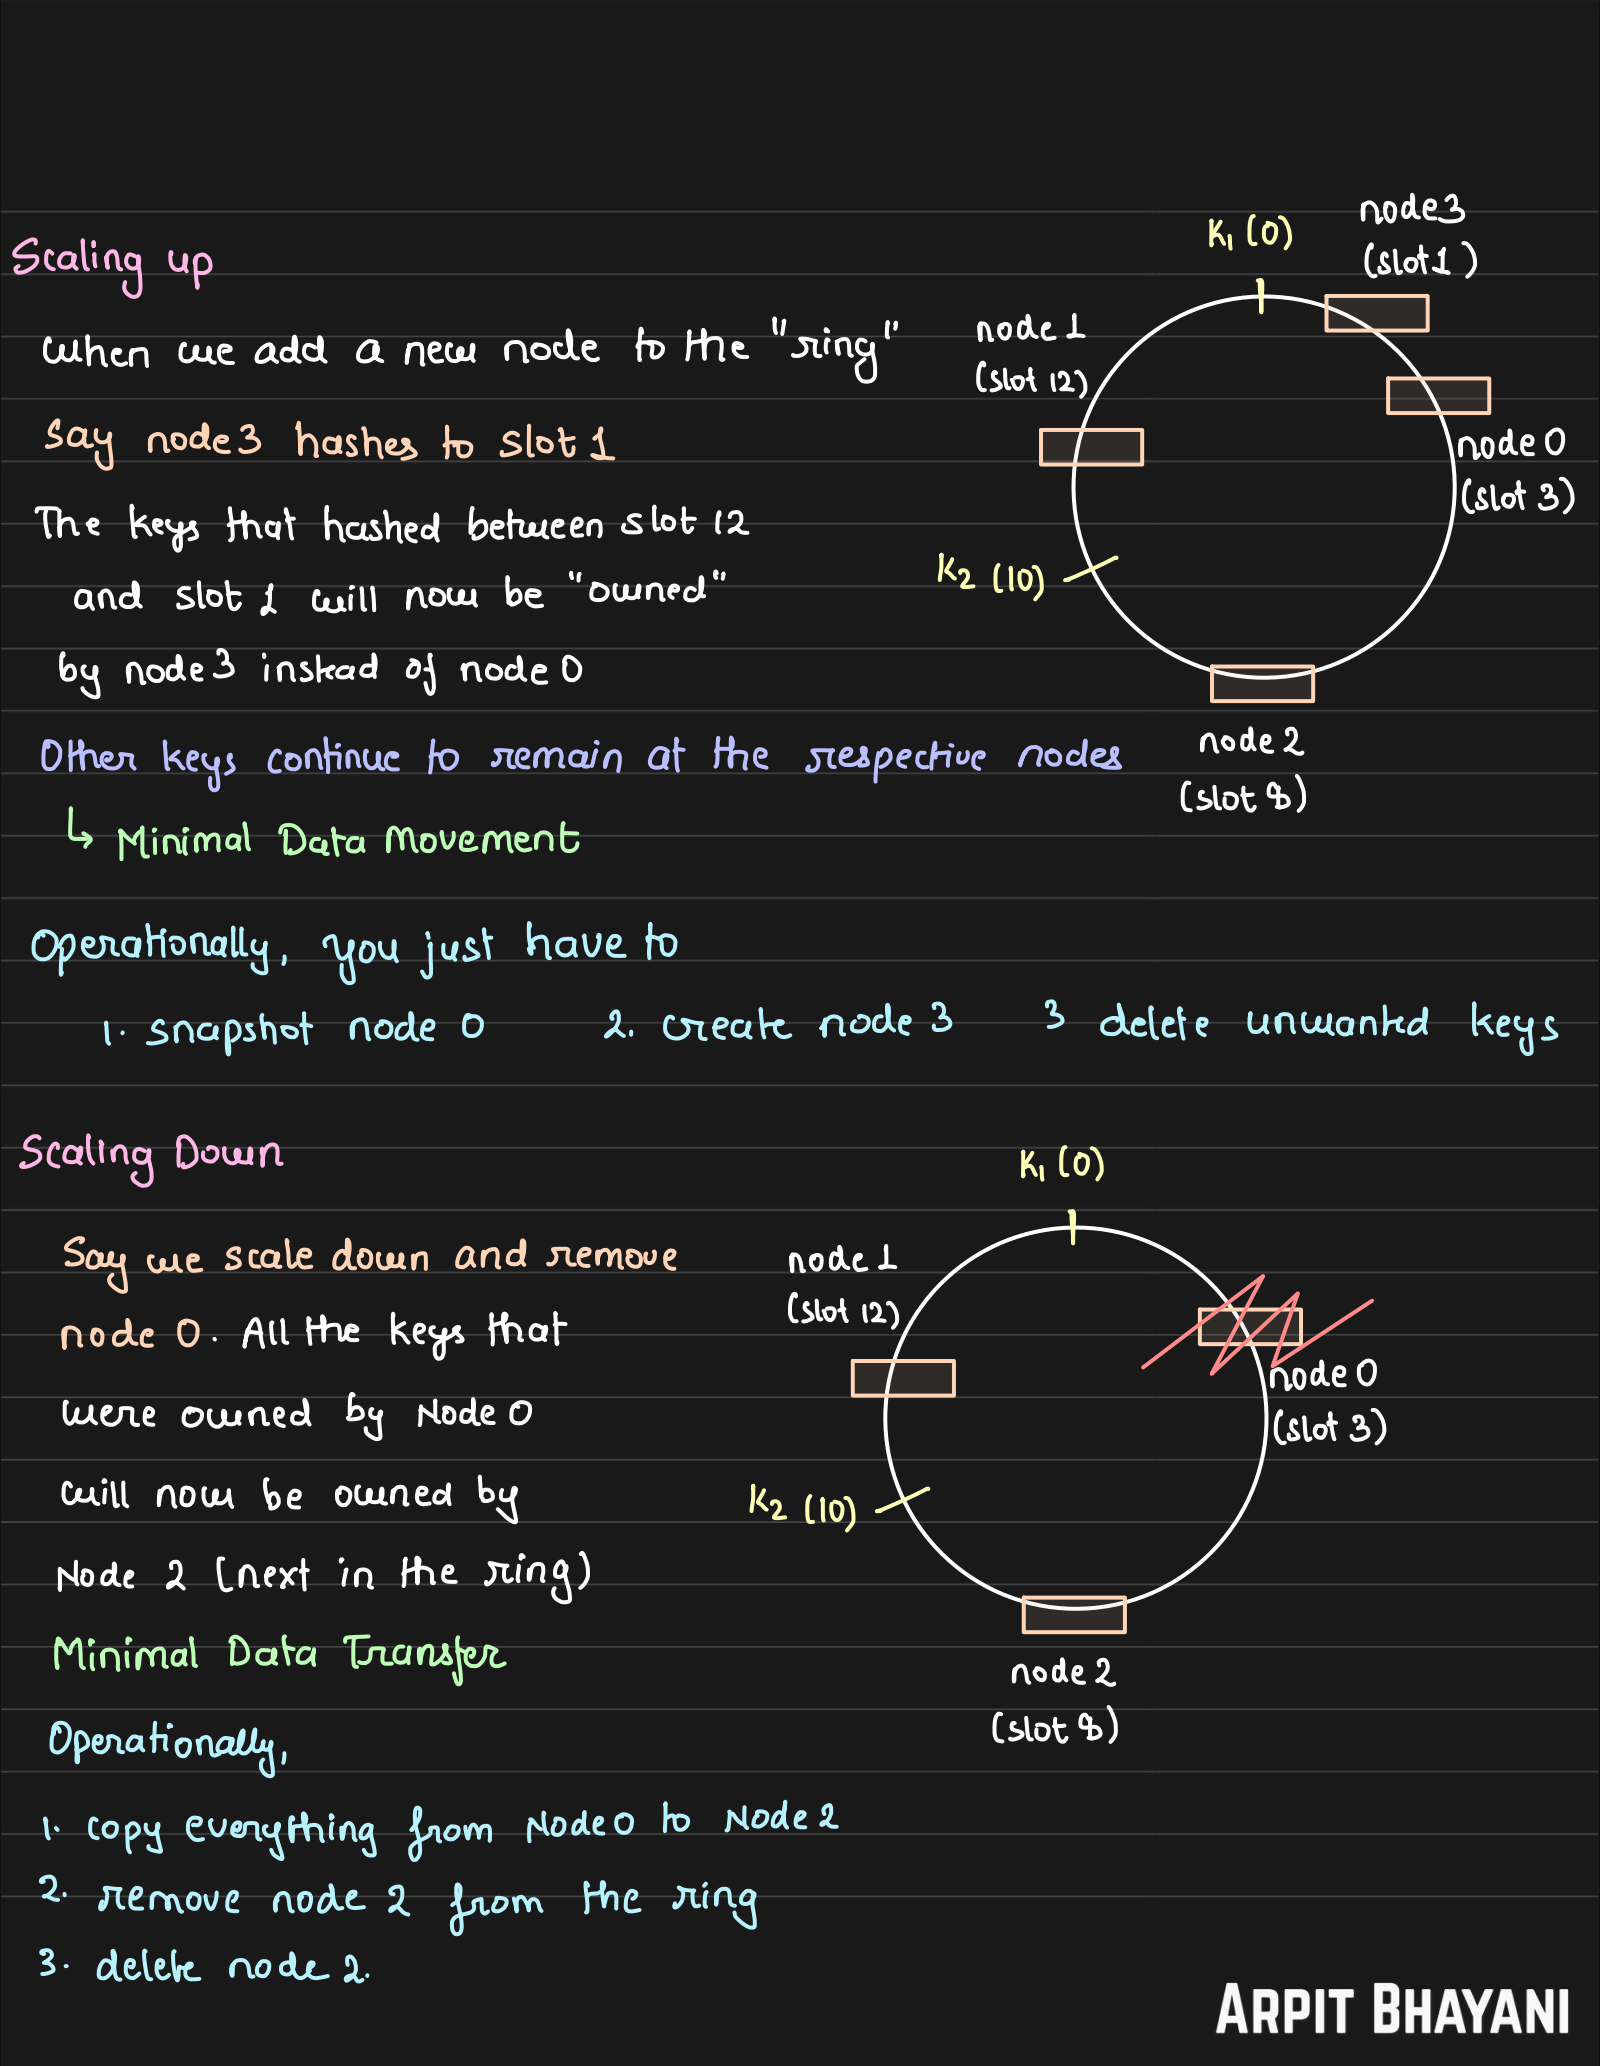 Scaling up
When we add a new node to the "ring"
Say node3 hashes to slot 1
The keys that hashed between slot 12
and slot 1 will now be "owned"
by node3 instead of node 0
Other keys continue to remain at the respective nodes
↳ Minimal Data Movement
K₁ (0)
node3
(slot1)
node 1
(slot 12)
node 0
(slot 3)
K₂ (10)
node 2
(slot 8)
Operationally, you just have to
1. snapshot node 0 2. create node 3 3 delete unwanted keys
Scaling Down
Say we scale down and remove
node 0. All the keys that
were owned by Node 0
will now be owned by
Node 2 (next in the ring)
Minimal Data Transfer
K₁ (0)
node 1
(slot 12)
node 0
(slot 3)
K₂ (10)
node 2
(slot 8)
Operationally,
1. copy everything from Node 0 to Node 2
2. remove node 2 from the ring
3. delete node 2.
ARPIT BHAYANI